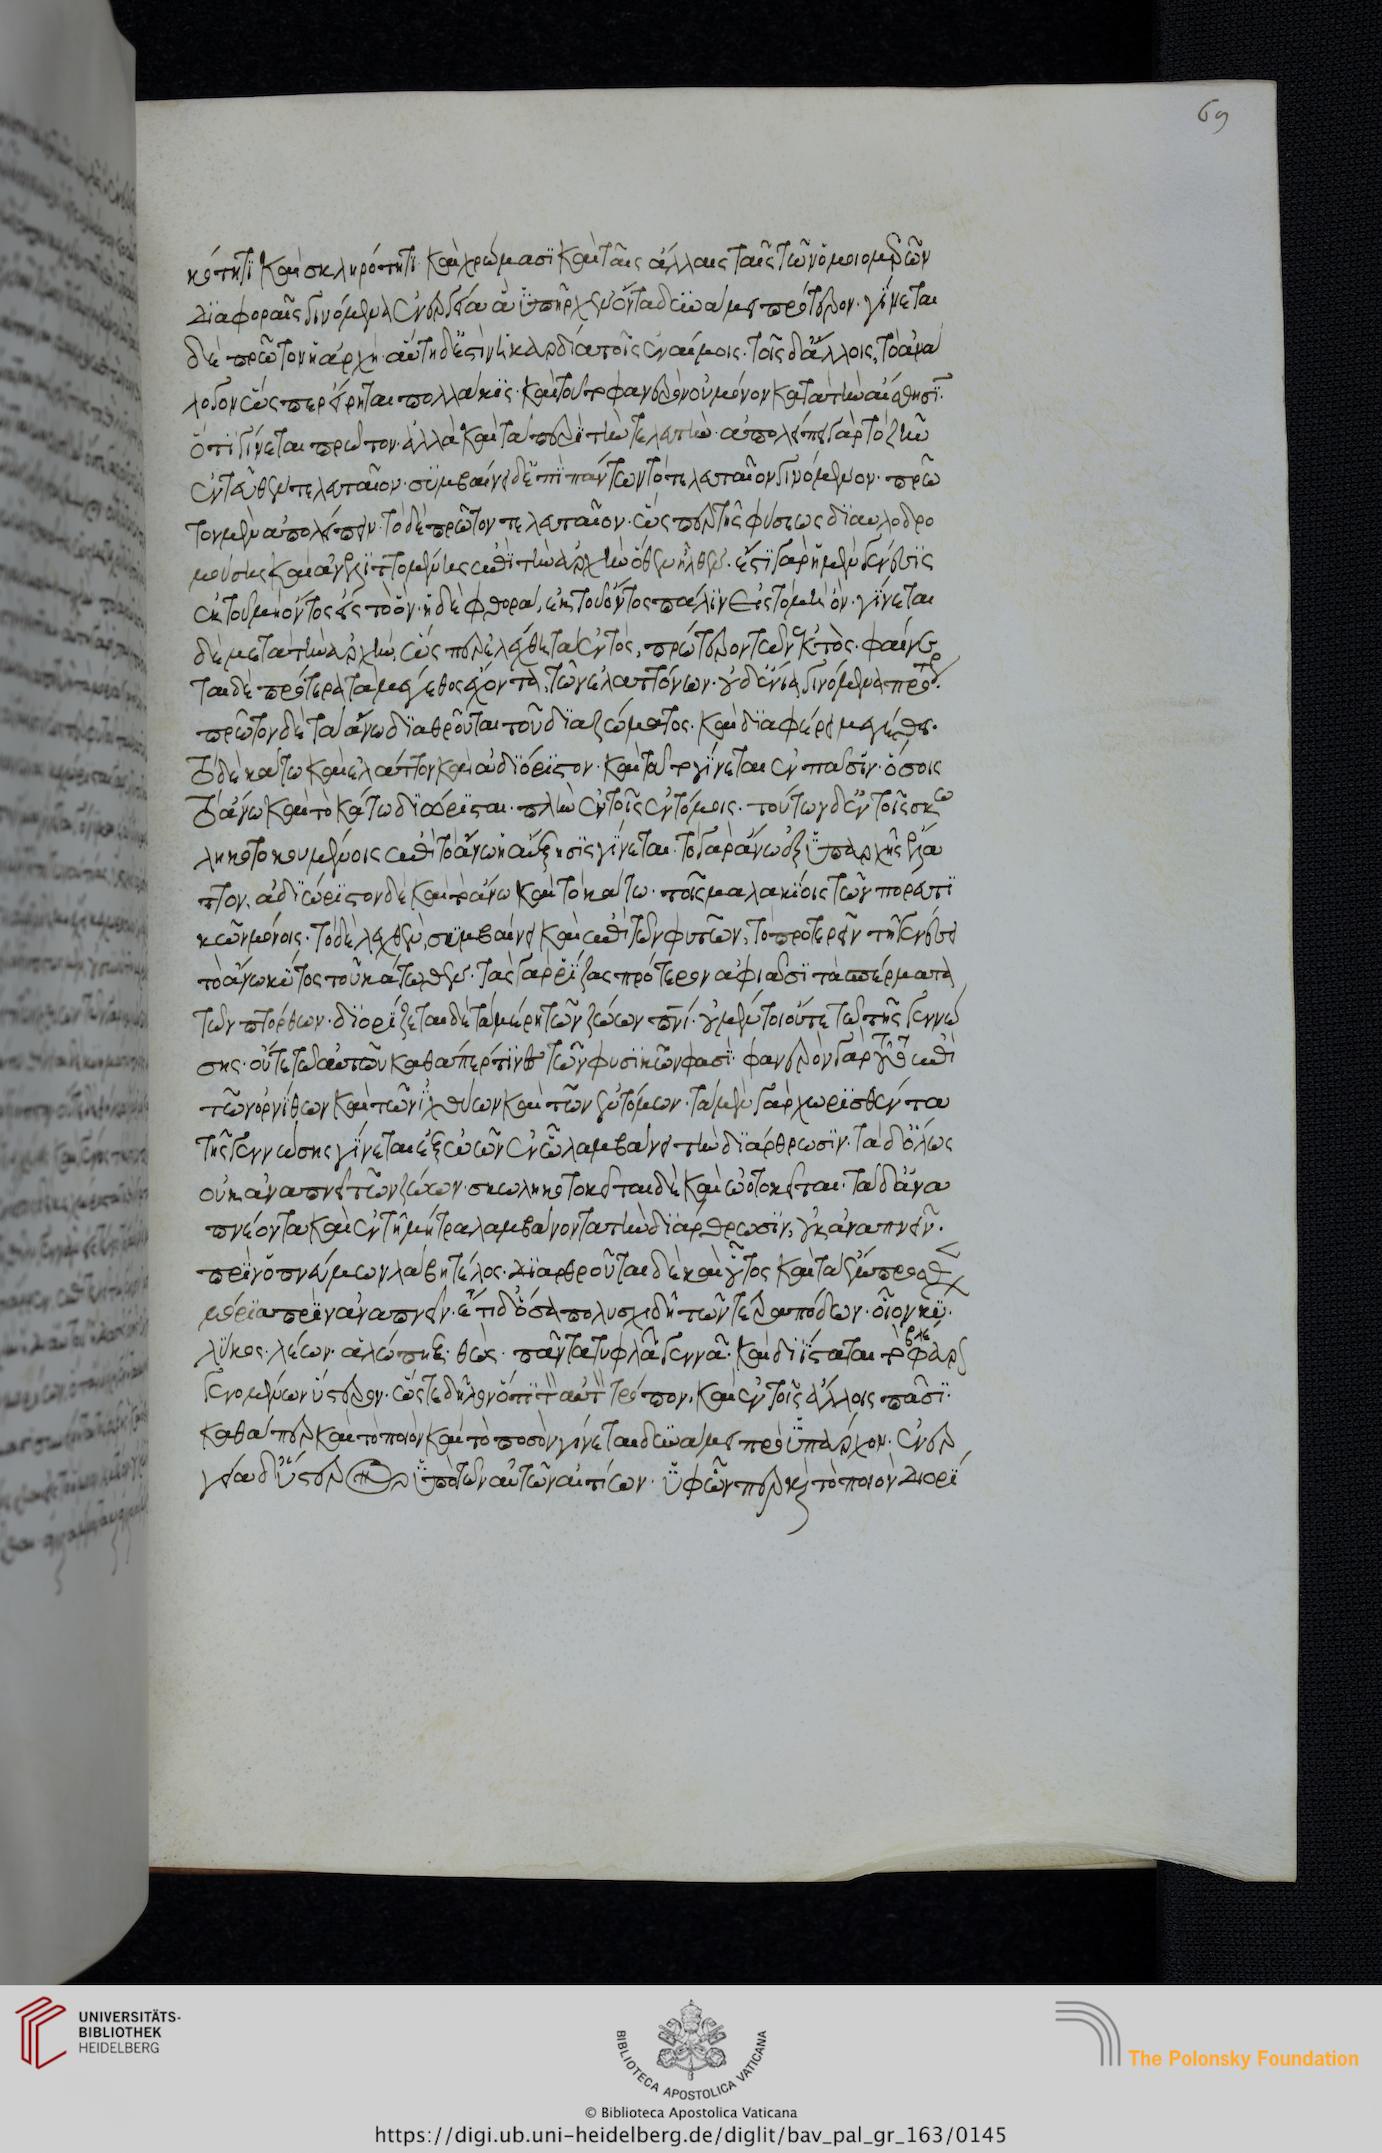 69
κότητι καὶ σκληρότητι καὶ χρώμασι καὶ ταῖς ἄλλαις ταῖς τῶν ὁμοιομερῶν
διαφοραῖς γινόμενα ἐνεργεία ἃ ὑπῆρχεν ὄντα δυνάμει πρότερον. γίνεται
δὲ πρῶτον ἡ ἀρχή. αὕτη δ' ἐστὶν ἡ καρδία τοῖς ἐναίμοις. τοῖς δ' ἄλλοις, τὸ ἀνά
λογον ὥσπερ εἴρηται πολλάκις. καὶ τοῦτο φανερὸν οὐ μόνον κατὰ τὴν αἴσθησιν
ὅτι γίνεται πρῶτον. ἀλλὰ καὶ περὶ τὴν τελευτήν. ἀπολείπει γὰρ τὸ ζῆν
ἐντεῦθεν τελευταῖον. συμβαίνει δ' ἐπὶ πάντων τὸ τελευταῖον γινόμενον. πρῶ
τον μὲν ἀπολείπειν. τὸ δὲ πρῶτον τελευταῖον. ὥσπερ τῆς φύσεως διαυλοδρο
μούσης καὶ ἀνελιττομένης ἐπὶ τὴν ἀρχὴν ὅθεν ἦλθεν. ἔστι γὰρ ἡ μὲν γένεσις
ἐκ τοῦ μὴ ὄντος εἰς τὸ ὄν. ἡ δὲ φθορὰ, ἐκ τοῦ ὄντος πάλιν εἰς τὸ μὴ ὄν. γίνεται
δὲ μετὰ τὴν ἀρχὴν, ὥσπερ ἐλέχθη τὰ ἐντὸς, πρότερον τῶν ἐκτὸς. φαίνε
ται δὲ πρότερα τὰ μέγεθος ἔχοντα, τῶν ἐλαττόνων. οὐδ' ἔνια γινόμενα πρότερ.
πρῶτον δὲ τὰ ἄνω διαθροῦται τοῦ διαζώματος. καὶ διαφέρει μεγέθει.
τὸ δὲ κάτω καὶ ἔλαττον καὶ ἀδιόριστον. καὶ τοῦτο γίνεται ἐν πᾶσιν. ὅσοις
τὸ ἄνω καὶ τὸ κάτω διώρισται. πλὴν ἐν τοῖς ἐντόμοις. τούτων δ' ἐν τοῖς σκω
ληκοτοκουμένοις ἐπὶ τὸ ἄνω ἡ αὔξησις γίνεται. τὸ γὰρ ἄνω ἐξ ὑπαρχῆς ἔλα
ττον. ἀδιώριστον δὲ καὶ τὸ ἄνω καὶ τὸ κάτω. τοῖς μαλακίοις τῶν πορευτι
κῶν μόνοις. τὸ δὲ λεχθὲν, συμβαίνει καὶ ἐπὶ τῶν φυτῶν, τὸ προτερεῖν τῇ γενέσει
τὸ ἄνω κύτος τοῦ κάτωθεν. τὰς γὰρ ῥίζας πρότερον ἀφιᾶσι τὰ σπέρματα
τῶν πτόρθων. διορίζεται δὲ τὰ μέρη τῶν ζώων πνί. οὐ μέντοι οὔτε τῶ τῆς γεννώ
σης. οὔτε τῶ αὐτῶν καθάπερ τινὲς τῶν φυσικῶν φασί. φανερὸν γὰρ τοῦτο ἐπὶ
τῶν ὀρνίθων καὶ τῶν ἰχθύων καὶ τῶν ἐντόμων. τὰ μὲν γὰρ χωρισθέντα
τῆς γεννώσης γίνεται ἐξ ὠῶν ἐν ᾧ λαμβάνει τὴν διάρθρωσιν. τὰ δ' ὅλως
οὐκ ἀναπνεῖ τῶν ζώων. σκωληκοτοκεῖται δὲ καὶ ὠοτοκεῖται. τὰ δ' ἀνα
πνέοντα καὶ ἐν τῇ μήτρα λαμβάνοντα τὴν διάρθρωσιν, οὐκ ἀναπνεῖν.
πρὶν ὁ πνεύμων λάβη τέλος. διαρθροῦται δὲ καὶ οὗτος καὶ τὰ ἔμπροσθεν
μόρια πρὶν ἀναπνεῖν. ἔτι δ' ὅσα πολυσχιδῆ τῶν τετραπόδων. οἷον κύ.
λύκος. λέων. ἀλώπηξ. θὼς. πάντα τυφλὰ γεννᾶ. καὶ διίσταται τὸ βλέφαρ
γενομένων ὕστερον. ὥστε δῆλον ὅτι τὸν αὐτὸν τρόπον, καὶ ἐν τοῖς ἄλλοις πᾶσι.
καθάπερ καὶ τὸ ποιὸν καὶ τὸ ποσὸν γίνεται δυνάμει προϋπάρχον. ἐνερ
γεία δ' ὕστερον ὑπὸ τῶν αὐτῶν αἰτίων. ὑφ' ὧνπερ καὶ τὸ ποιὸν διορί
UNIVERSITÄTS-
BIBLIOTHEK
HEIDELBERG
BIBLIOTECA APOSTOLICA VATICANA
The Polonsky Foundation
© Biblioteca Apostolica Vaticana
https://digi.ub.uni-heidelberg.de/diglit/bav_pal_gr_163/0145